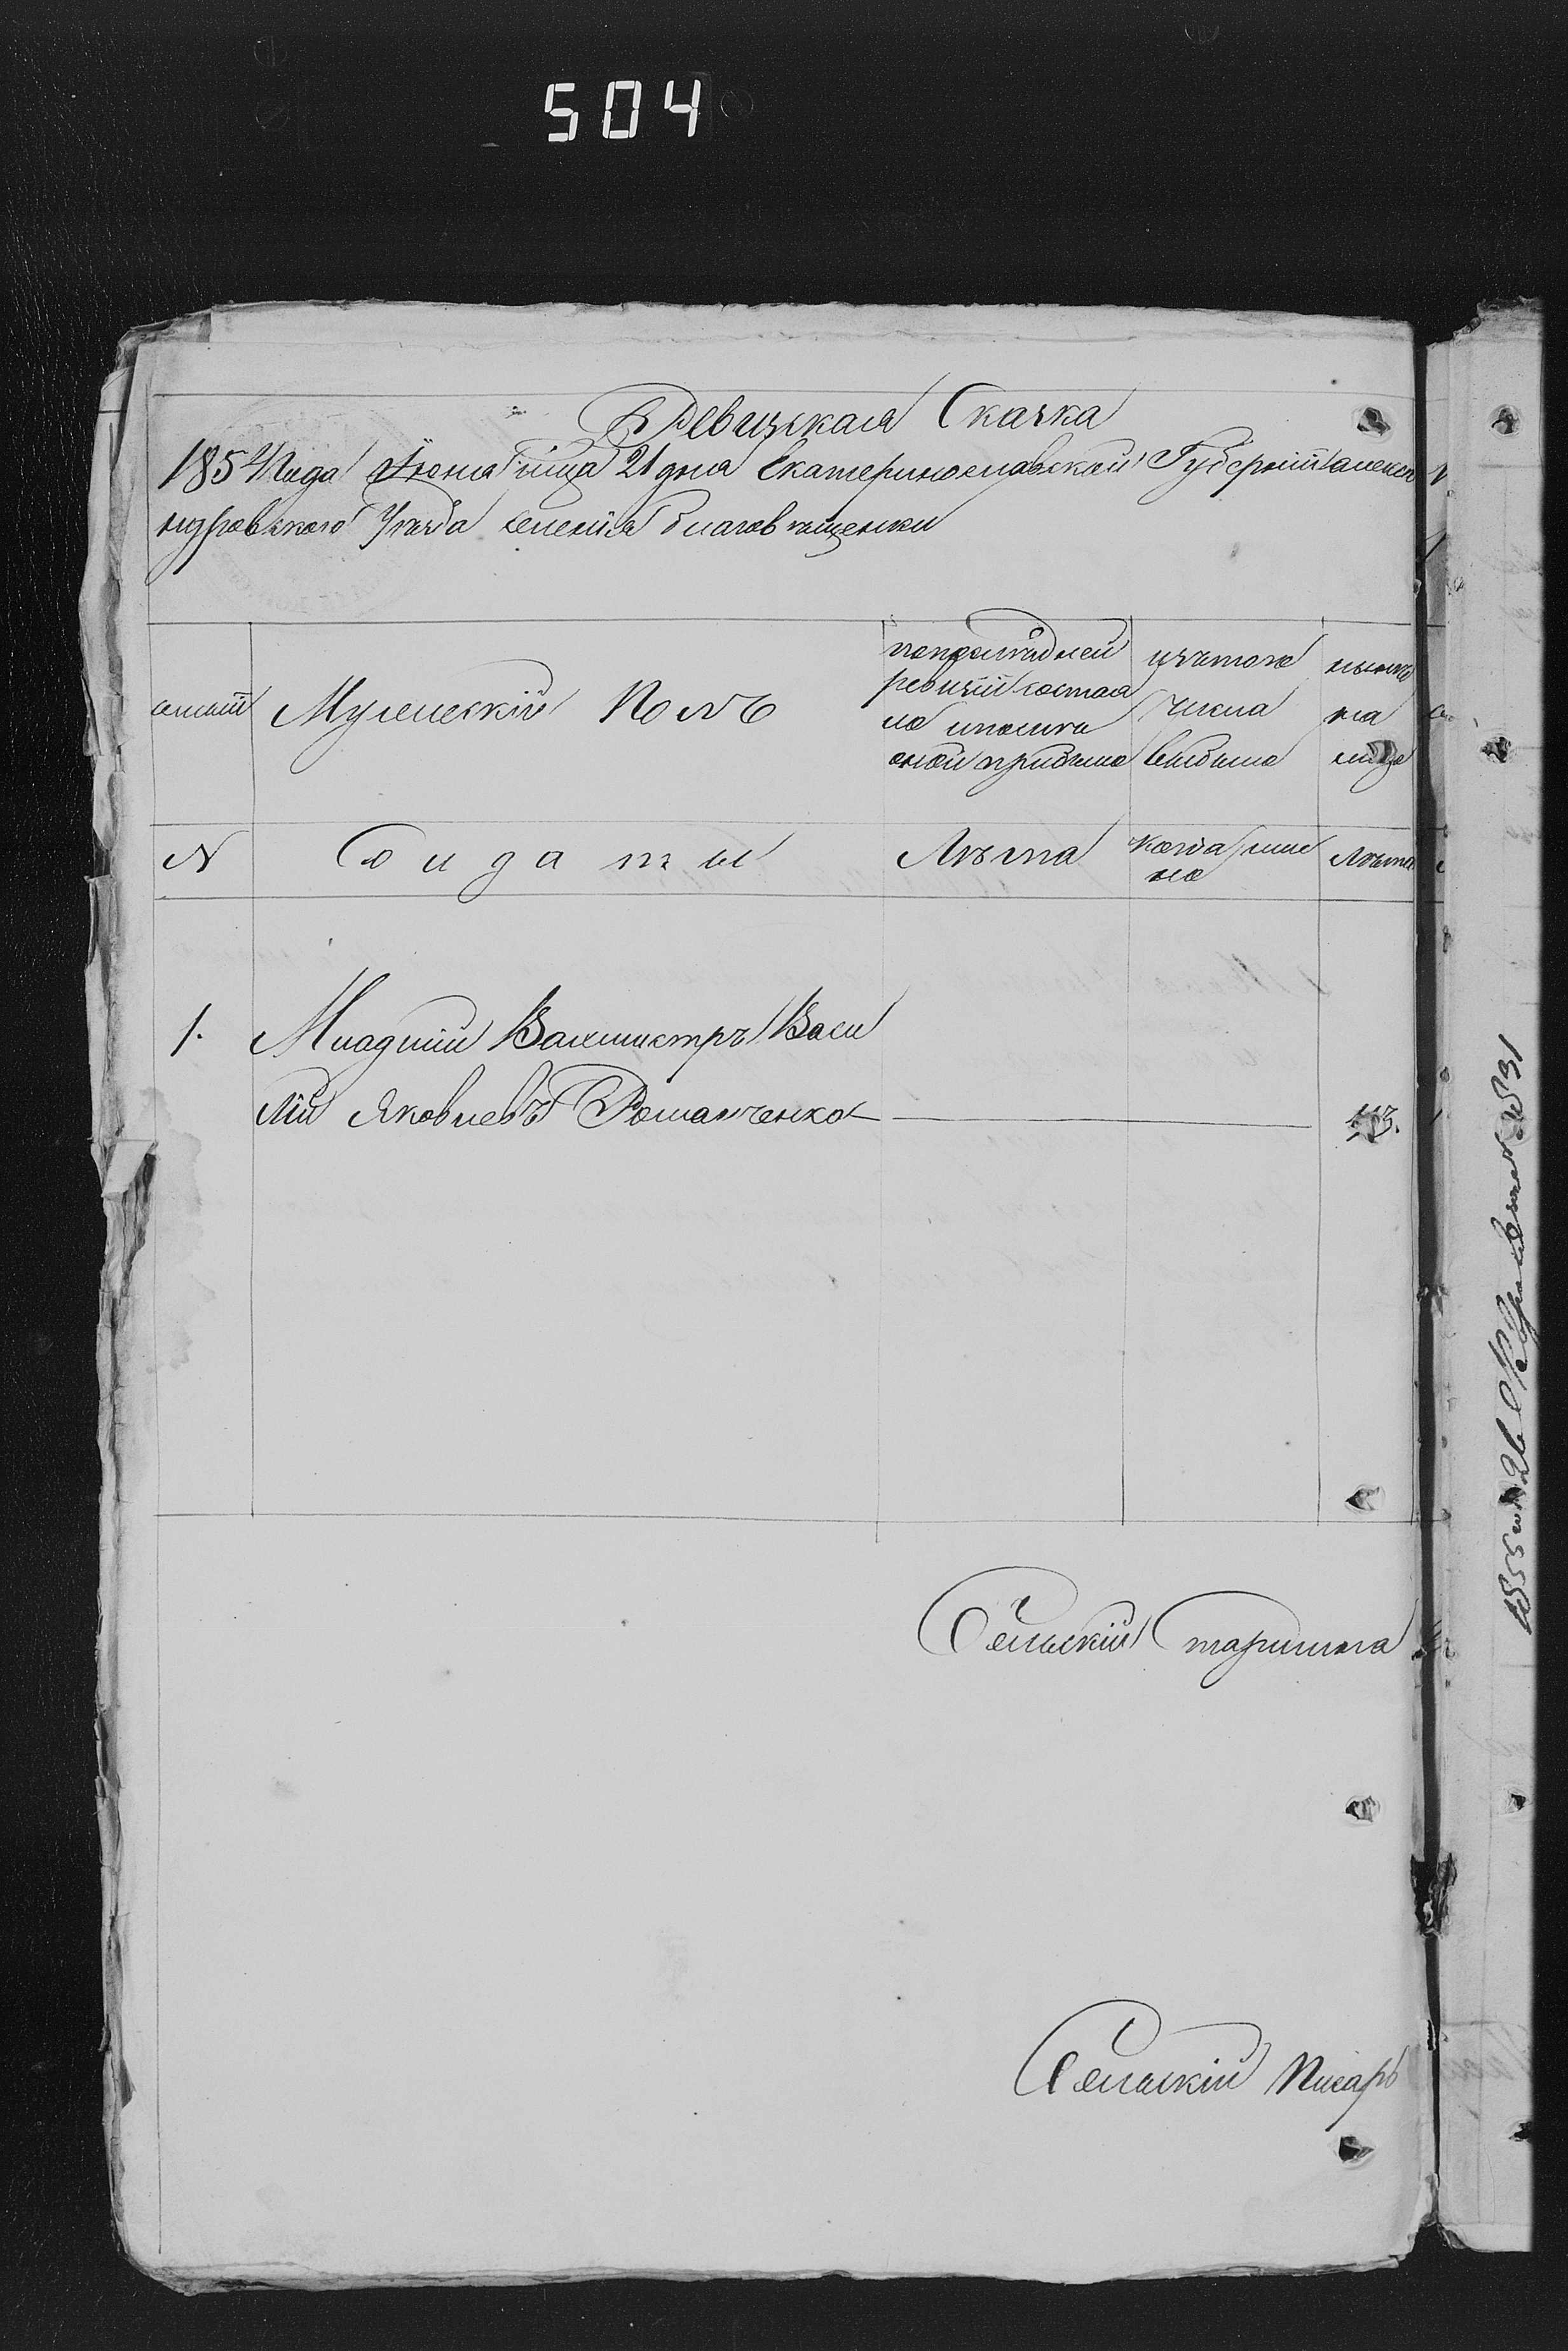 504
Ревизская Сказка
1854 года Июня м҃ца 21 дня Екатеринославской Губерніи Алекса
ндровского Уезда селенія Благовѣщенки
Мужескій Полъ
по последней
ревизіи состоя
ло и после
оной прибыло
изъ того
числа
выбыло
ныне
на
лицо
N
Солдаты
Лѣта
когда имен
но
Лѣта
1. Младшій Вахмистръ Васи
лій Яковлевъ Романченко 43.
Сельскій Старшина
Сельскій Писарь